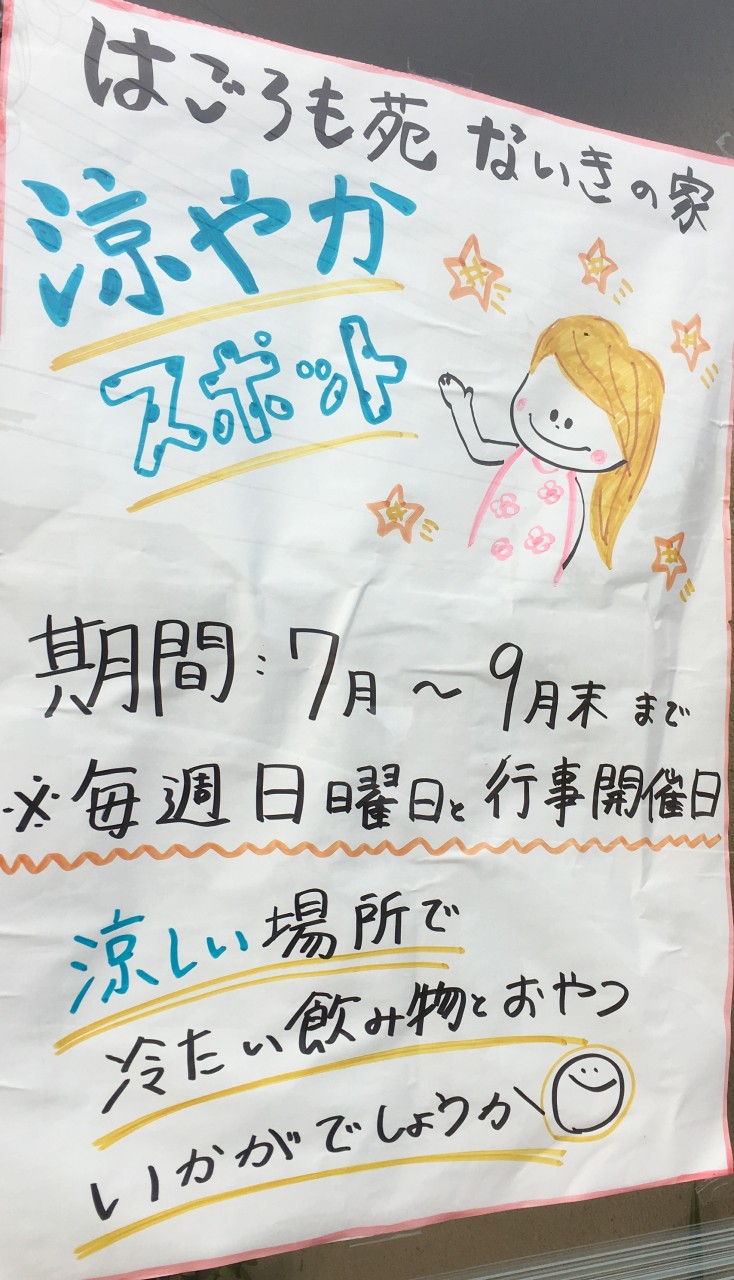 はごろも苑 ないきの家
涼やか
スポット
期間:7月～9月末まで
※毎週日曜日と行事開催日
涼しい場所で
冷たい飲み物とおやつ
いかがでしょうか